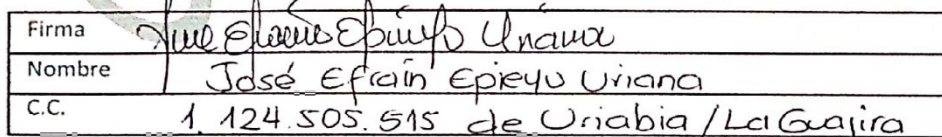 Firma José Efraín Epieyu Uriana
Nombre José Efraín Epieyu Uriana
C.C. 1.124.505.515 de Uriabia / La Guajira